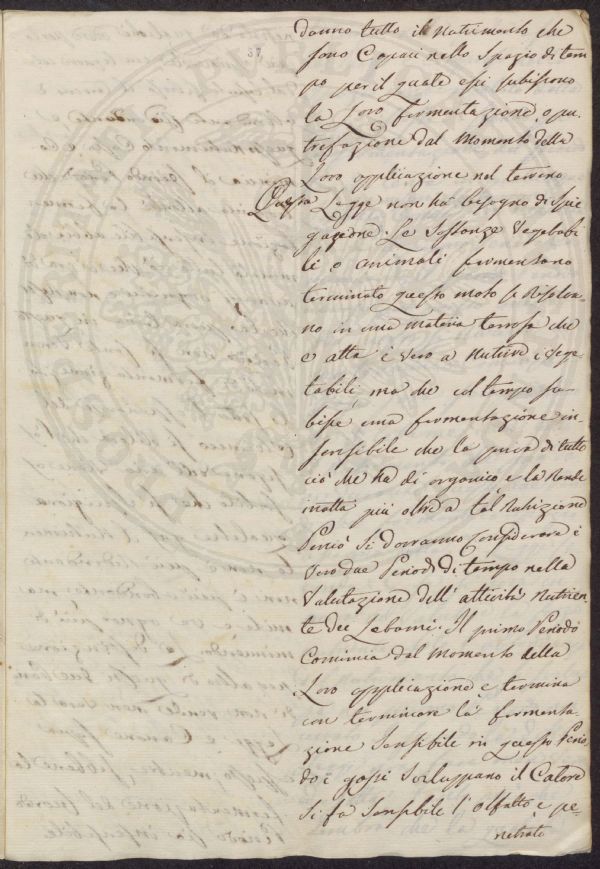 37
danno tutto il nutrimento che
sono Capaci nello Spazio di tem
po per il quale essi subiscono
la Loro fermentazione, o pu-
trefazione dal Momento della
Loro applicazione nel terreno
Questa Legge non há bisogno di spie
gazione. Le Sostanze Vegetabi
li o animali fermentano
terminato questo moto si Risolvo-
no in una materia terrosa che
e atta è vero a Nutrire i Vege
tabili, ma che col tempo su-
bisce una fermentazione in-
sensibile che la priva di tutto
ciò che ha di organico e la Rende
inatta più oltre a tal Nutrizione
Perciò Si dovranno Considerare i
Vero due Periodi di tempo nella
Valutazione dell' attività Nutrien-
te dei Letami. Il primo Periodo
Comincia dal Momento della
Loro applicazione e termina
con terminare la fermenta-
zione Sensibile in questo Perio
do i gassi Sviluppano il Calore
Si fa Sensibile l'olfatto è pe-
netrato